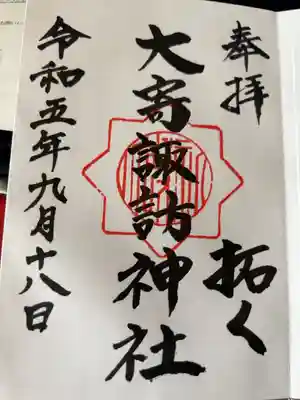 奉拝
拓く
大寄諏訪神社
令和五年九月十八日